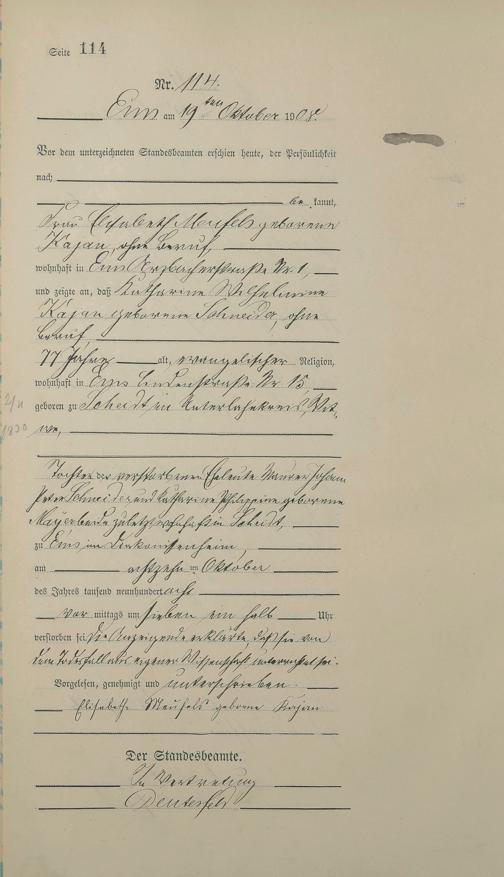 Seite 114
Nr. 114.
Ems am 19ten Oktober 1908.
Vor dem unterzeichneten Standesbeamten erschien heute, der Persönlichkeit
nach
be kannt,
Frau Elisabeth Meufels geborene
Kajan, ohne Beruf,
wohnhaft in Ems Arzbacherstraße Nr. 1,
und zeigte an, daß Katharine Wilhelmine
Kajan geborene Schneider, ohne
Beruf,
77 Jahre alt, evangelischer Religion,
wohnhaft in Ems Lindenstraße Nr. 15,
geboren zu Scheidt im Unterlahnkreis, Wit-
we,
1830
Tochter der verstorbenen Eheleute Maurer Johann
Peter Schneider und Katharine Philippine geborene
Mayer beide zuletzt wohnhaft in Scheidt,
zu Ems im Diakonissenheim,
am achtzehn ten Oktober
des Jahres tausend neunhundert acht
vor mittags um sieben ein halb Uhr
verstorben sei. Die Anzeigende erklärte, daß sie von
dem Todesfall aus eigener Wissenschaft unterrichtet sei.
Vorgelesen, genehmigt und unterschrieben
Elisabeth Meufels geborne Kajan
Der Standesbeamte.
In Vertretung